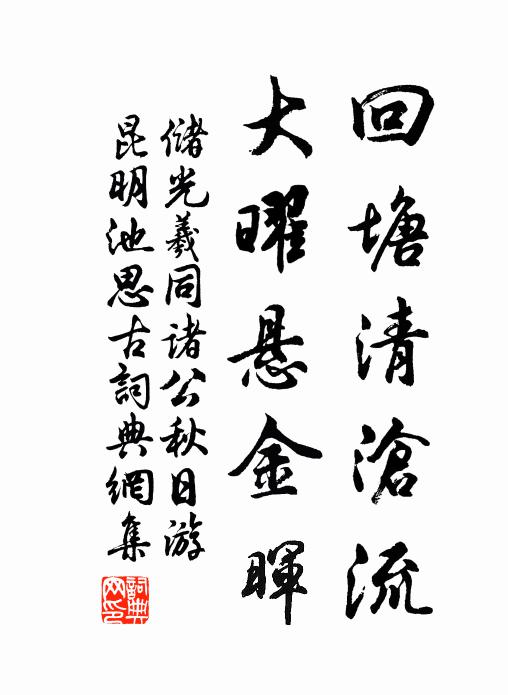 回塘清滄流
大曜悬金暉
儲光羲同诸公秋日游
昆明池思古詞典網集
詞典网印